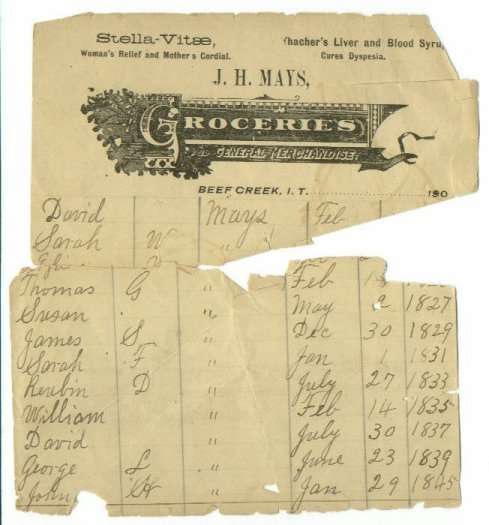 Stella-Vitæ, Thacher's Liver and Blood Syru
Woman's Relief and Mother's Cordial. Cures Dyspesia.
J. H. MAYS,
GROCERIES
AND GENERAL MERCHANDISE.
BEEF CREEK, I. T. 190
David Mays Feb
Sarah W "
Thomas G " Feb
Susan " May 2 1827
James S " Dec 30 1829
Sarah F " Jan 1 1831
Reubin D " July 27 1833
William " Feb 14 1835
David " July 30 1837
George L " June 23 1839
John H " Jan 29 1845